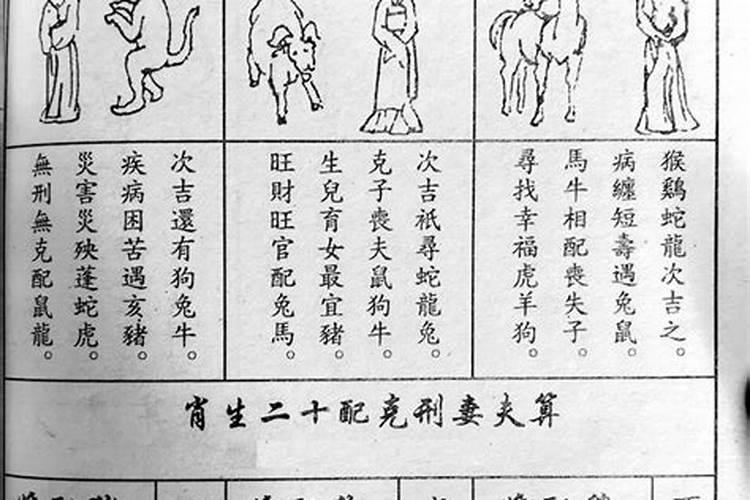 猴鷄蛇龍次吉之。
病纏短壽遇兔鼠。
馬牛相配喪失子。
尋找幸福虎羊狗。
次吉祇尋蛇龍兔。
克子喪夫鼠狗牛。
生兒育女最宜豬。
旺財旺官配兔馬。
次吉還有狗兔牛。
疾病困苦遇亥豬。
災害災殃蓬蛇虎。
無刑無克配鼠龍。
算夫妻刑克配十二生肖